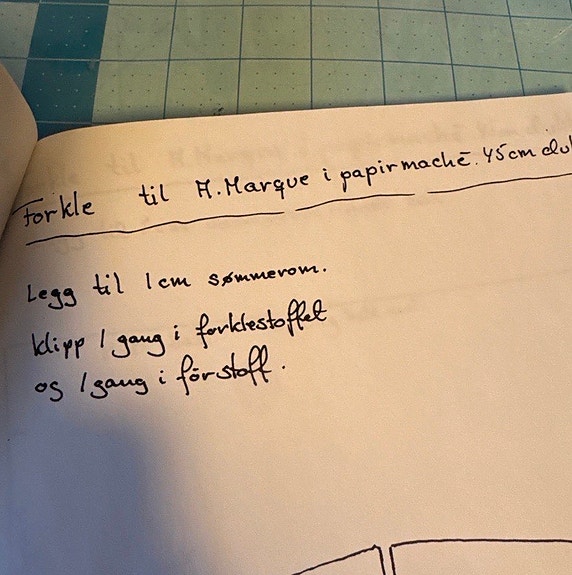 Forkle til A. Marque i papirmachē. 45cm
Legg til 1 cm sømmerom.
klipp 1 gang i forklestoffet
og 1 gang i fôrstoff.